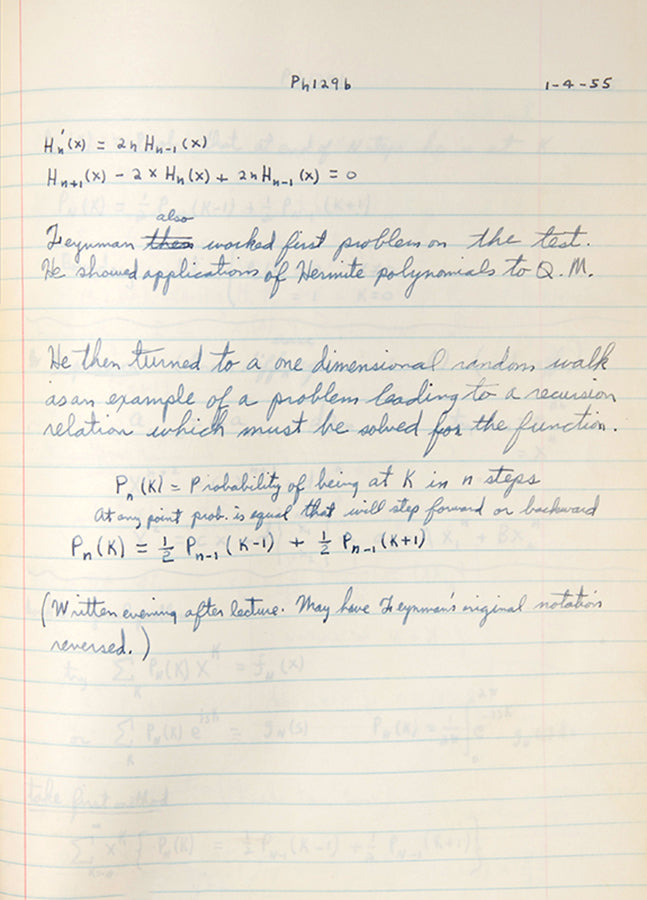 Ph129b 1-4-55
Hn'(x) = 2n Hn-1(x)
Hn+1(x) - 2x Hn(x) + 2n Hn-1(x) = 0
also
Feynman then worked first problem on the test.
He showed applications of Hermite polynomials to Q.M.
He then turned to a one dimensional random walk
as an example of a problem leading to a recursion
relation which must be solved for the function.
Pn(K) = Probability of being at K in n steps
At any point prob. is equal that will step forward or backward
Pn(K) = 1/2 Pn-1(K-1) + 1/2 Pn-1(K+1)
(Written evening after lecture. May have Feynman's original notation
reversed.)
try Σ PN(K) X^K = fN(x)
or Σ PN(K) e^isK = gN(s)
take first method